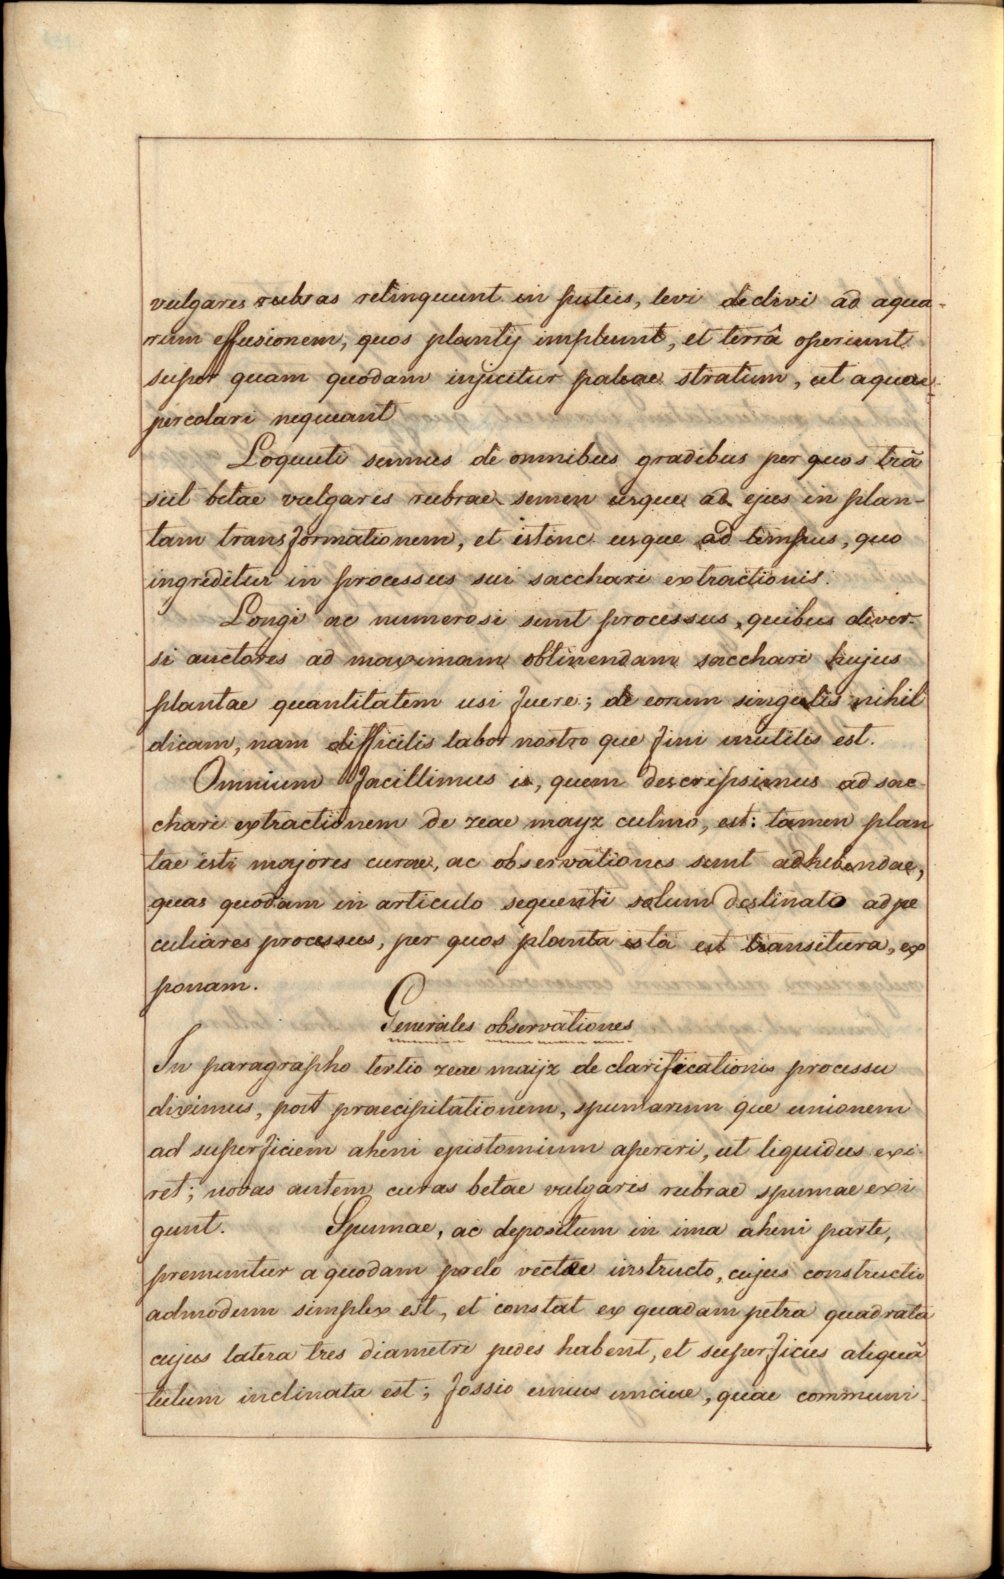 vulgares rubras relinquunt in puteis, levi declivi ad aqua-
rum effusionem, quos plantij impleunt, et terrâ operiunt
super quam quodam injicitur paleae stratum, ut aquae
percolari nequeant
Loquuti sumus de omnibus gradibus per quos trã
sit betae vulgaris rubrae semen usque ad ejus in plan-
tam transformationem, et istinc usque ad tempus, quo
ingreditur in processus sui sacchari extractionis.
Longi ac numerosi sunt processus, quibus diver-
si auctores ad maximam obtinendam sacchari hujus
plantae quantitatem usi fuere; de eorum singulis nihil
dicam, nam difficilis labor nostro que fini inutilis est.
Omnium facillimus is, quem descripsimus ad sac
chari extractionem de zeae mayz culmo, est: tamen plan
tae isti majores curae, ac observationes sunt adhibendae,
quas quodam in articulo sequenti solum destinato ad pe
culiares processus, per quos planta ista est transitura, ex
ponam.
Generales observationes
In paragrapho tertio zeae maijz de clarificationis processu
diximus, post praecipitationem, spumarum que unionem
ad superficiem aheni epistomium aperiri, ut liquidus exi
ret; novas autem curas betae vulgaris rubrae spumae exi
gunt. Spumae, ac depositum in ima aheni parte,
premuntur a quodam prelo vectae instructo, cujus constructio
admodum simplex est, et constat ex quadam petra quadrata
cujus latera tres diametri pedes habent, et superficies aliquã
tulum inclinata est; fossio unius unciae, quae communi-